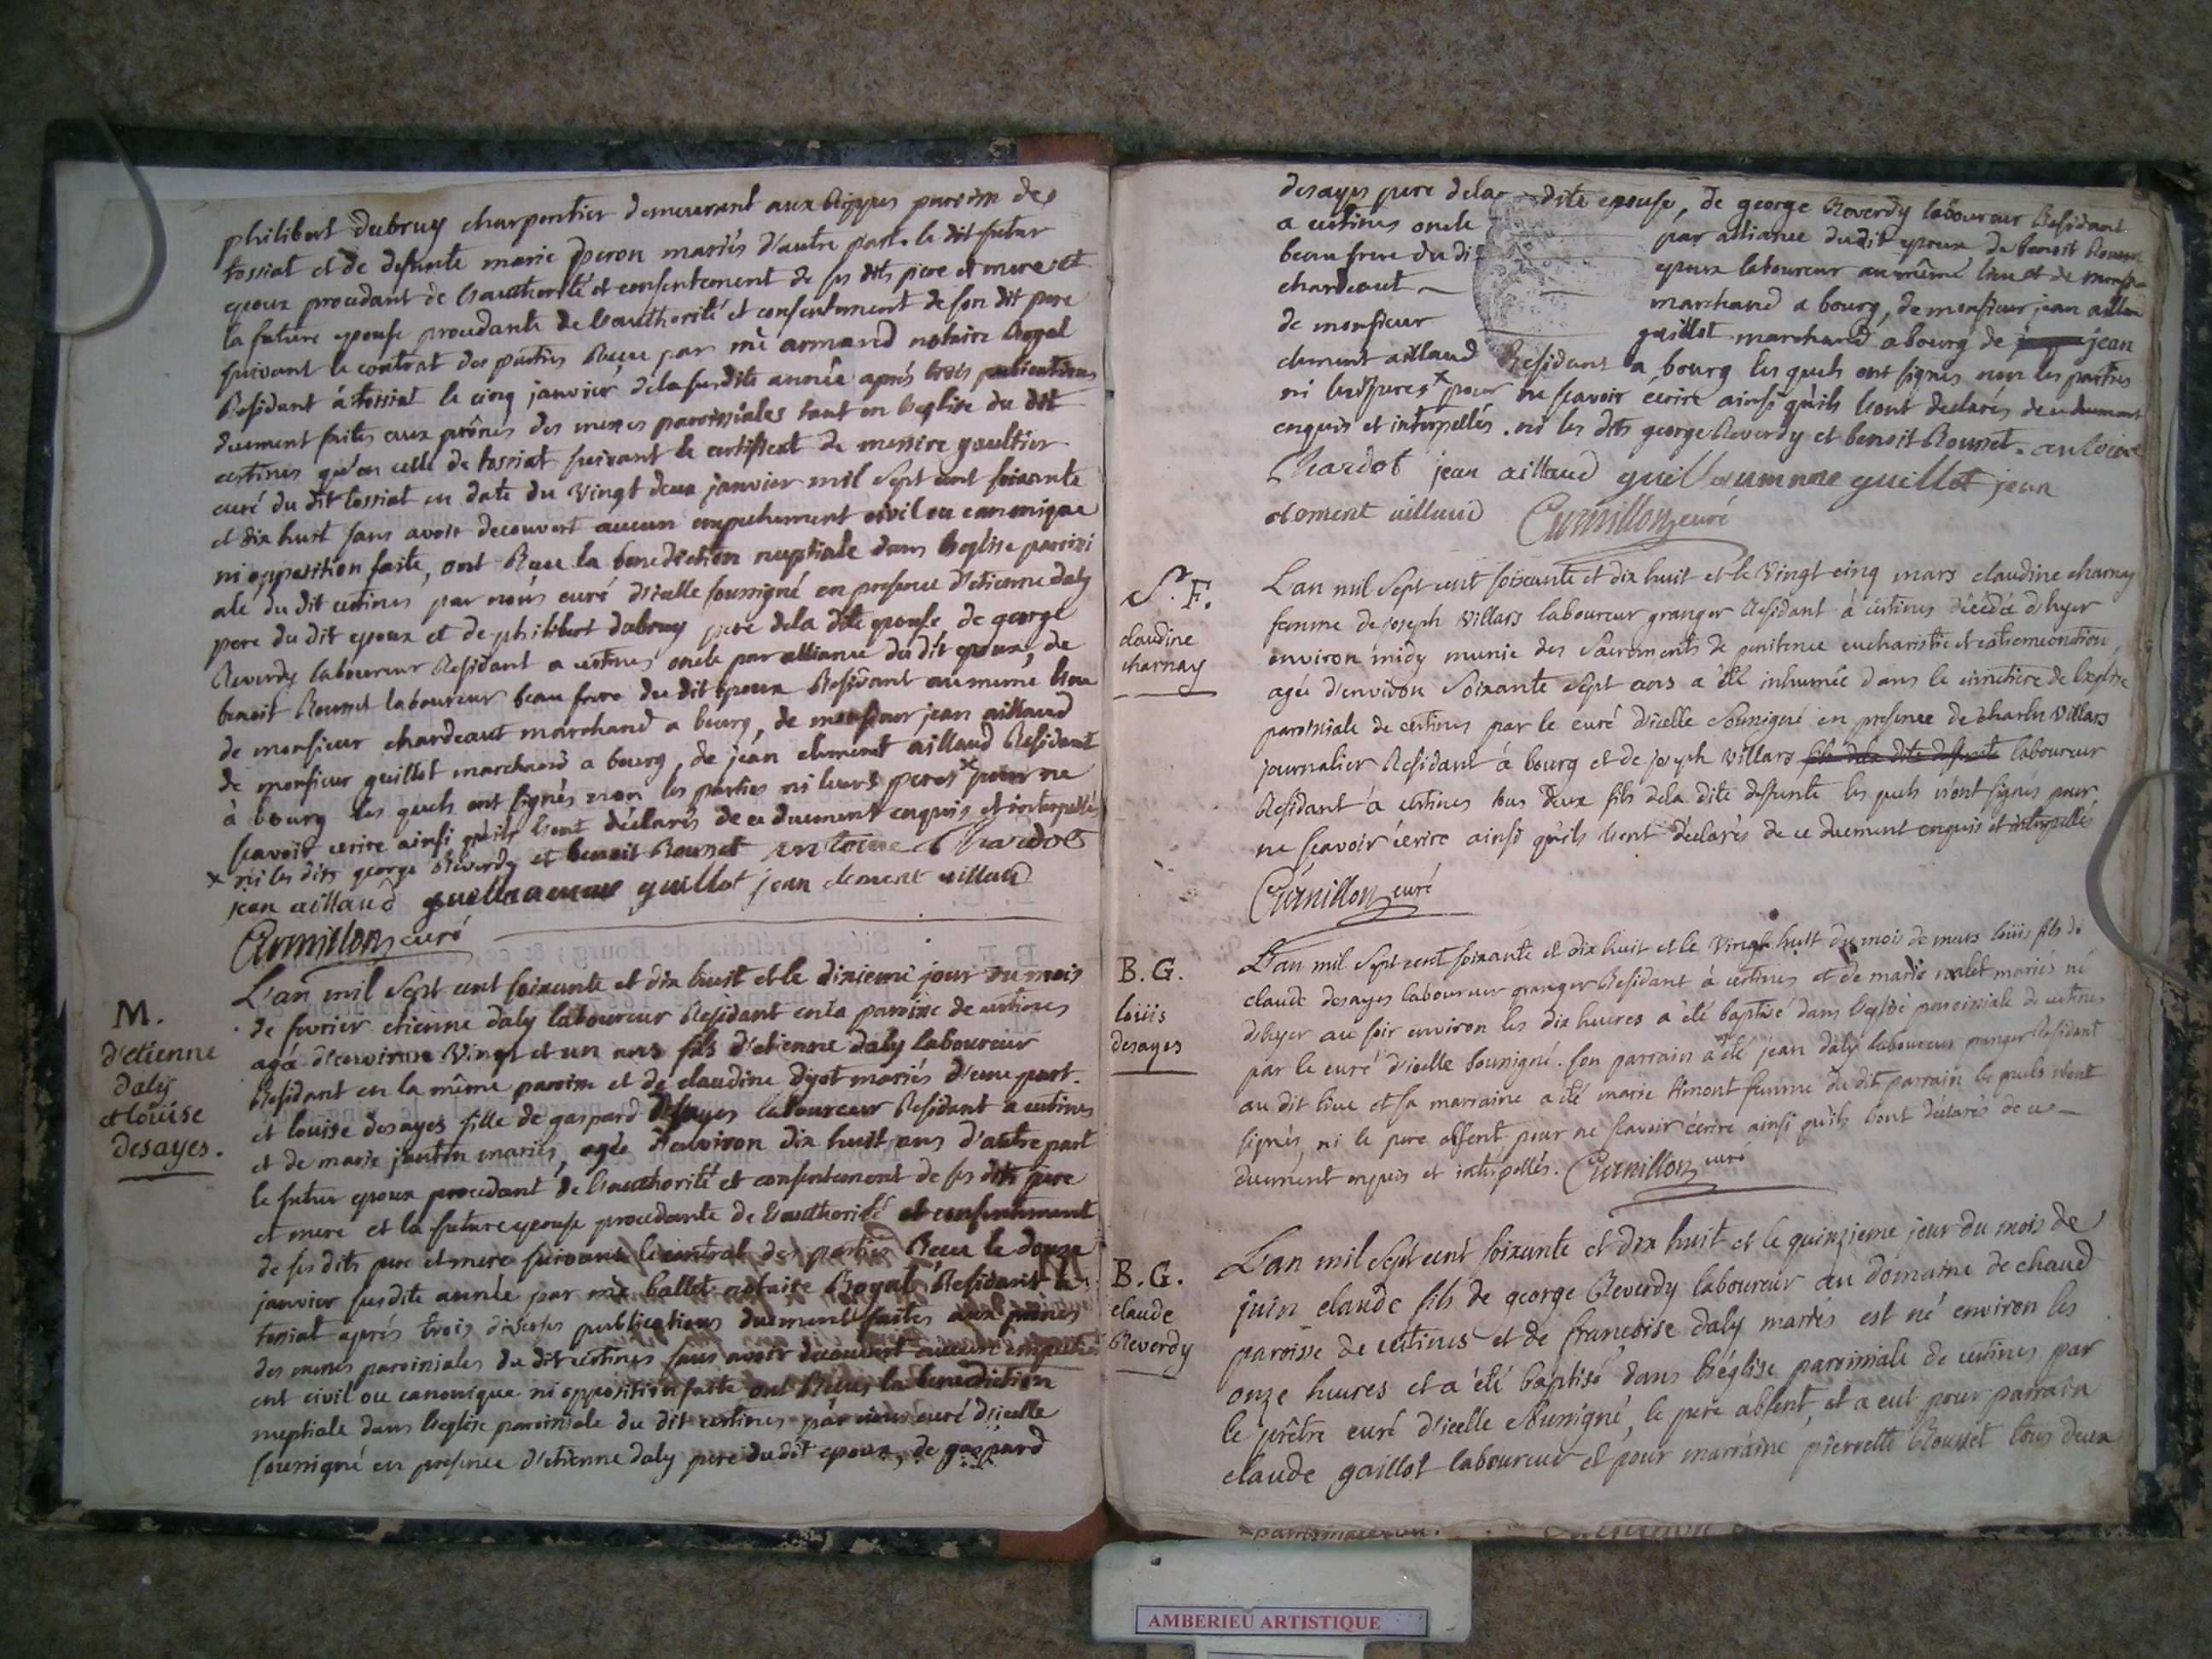 philibert dubruy charpentier demeurant aux Rippes paroisse de
tossiat et de defunte marie peron mariés d'autre part. le dit futur
epoux procedant de l'authorité et consentement de ses dits pere et mere et
la future epouse procedante de l'authorité et consentement de son dit pere
suivant le contrat des parties Recu par mè armand notaire Royal
Residant á tossiat le cinq janvier de la susdite année aprés trois publications
duement faites aux prônes des messes paroissiales tant en l'eglise du dit
certines qu'en celle de tossiat suivant le certificat de messire gaultier
curé du dit tossiat en date du vingt deux janvier mil sept cent soixante
et dix huit sans avoir decouvert aucun empechement civil ou canonique
ni opposition faite, ont Recu la benediction nuptiale dans l'eglise paroissi
ale du dit certines par nous curé d'icelle soussigné en presence d'etienne daly
pere du dit epoux et de philibert dubruy pere de la dite epouse de george
Reverdy laboureur Residant a certines oncle par alliance du dit epoux, de
benoit Rousset laboureur beau frere du dit epoux Residant au meme lieu
de monsieur chardeaut marchand a bourg, de monsieur jean aillaud
de monsieur guillot marchand a bourg, de jean clement aillaud Residant
à bourg les quels ont signés non les parties ni leurs peres x pour ne
scavoir ecrire ainsi qu'ils l'ont déclarés de ce duement enquis et interpellés
x ni les dits george Reverdy et benoit Rousset antoine Chardot
jean aillaud guillaume guillot jean clement aillaud
Curnillon curé
M.
d'etienne
daly
et loüise
desayes.
L'an mil sept cent soixante et dix huit et le dixieme jour du mois
de fevrier etienne daly laboureur Residant en la paroisse de certines
agé d'environ vingt et un ans fils d'etienne daly laboureur
Residant en la même paroisse et de claudine dyot mariés d'une part.
et louise desayes fille de gaspard desayes laboureur Residant a certines
et de marie janton mariés, agée d'environ dix huit ans d'autre part
le futur epoux procedant de l'authorité et consentement de ses dits pere
et mere et la future epouse procedante de l'authorité et consentement
de ses dits pere et mere suivant le contrat des parties Recu le douze
janvier susdite année par mè ballet notaire Royal Residant a
tossiat aprés trois diverses publications duement faites aux prônes
des messes paroissiales du dit certines sans avoir decouvert aucun empechem
ent civil ou canonique ni opposition faite ont Recus la benediction
nuptiale dans l'eglise paroissiale du dit certines par nous curé d'icelle
soussigné en presence d'etienne daly pere du dit epoux, de gaspard
desayes pere de la dite epouse, de george Reverdy laboureur Residant
a certines oncle par alliance du dit epoux de benoit Rousset
beau frere du dit epoux laboureur au même lieu et de monsieur
chardeaut marchand a bourg, de monsieur jean aillaud
de monsieur guillot marchand a bourg de jean
clement aillaud Residans a bourg les quels ont signés non les parties
ni les peres x pour ne scavoir écrire ainsi qu'ils l'ont declarés de ce duement
enquis et interpellés. ni les dits george Reverdy et benoit Rousset. antoine
Chardot jean aillaud guillaumme guillot jean
clement aillaud Curnillon curé
S.r F.
claudine
charnay
L'an mil sept cent soixante et dix huit et le vingt cinq mars claudine charnay
femme de joseph villars laboureur granger Residant à certines décédée d'hyer
environ midy munie des sacrements de penitence eucharistie et extremeonction,
agée d'environ soixante sept ans a été inhumée dans le cimetiere de l'eglise
paroissiale de certines par le curé d'icelle soussigné en presence de charles villars
journalier Residant à bourg et de joseph villars fils de la dite defunte laboureur
Residant a certines tous deux fils de la dite defunte les quels n'ont signés pour
ne scavoir écrire ainsi qu'ils l'ont déclarés de ce duement enquis et interpellés
Curnillon curé
B. G.
loüis
desayes
L'an mil sept cent soixante et dix huit et le vingt huit du mois de mars loüis fils de
claude desayes laboureur granger Residant à certines et de marie malet mariés né
d'hyer au soir environ les dix heures a été baptisé dans l'eglise paroissiale de certines
par le curé d'icelle soussigné. son parrain a été jean daly laboureur granger Residant
au dit lieu et sa marraine a été marie Amont femme du dit parrain les quels n'ont
signés, ni le pere absent pour ne scavoir écrire ainsi qu'ils l'ont déclarés de ce
duement enquis et interpellés. Curnillon curé
B. G.
claude
Reverdy
L'an mil sept cent soixante et dix huit et le quinzieme jour du mois de
juin claude fils de george Reverdy laboureur au domaine de chaud
paroisse de certines et de francoise daly mariés est né environ les
onze heures et a été baptisé dans l'église paroissiale de certines par
le prêtre curé d'icelle soussigné, le pere absent, et a eut pour parrain
claude gaillot laboureur et pour marraine pierrette Rousset tous deux
AMBERIEU ARTISTIQUE